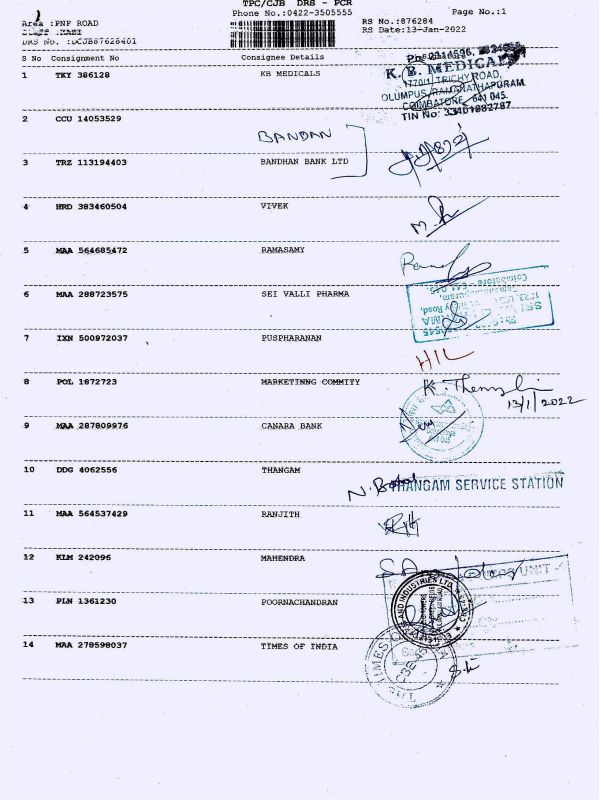 TPC/CJB DRS - PCR
Phone No.:0422-3505555
Page No.:1
Area :PNP ROAD
RS No.:876284
RS Date:13-Jan-2022
DRS No. :DCJB87628401
S No Consignment No Consignee Details
1 TKY 386128 KB MEDICALS
K. B. MEDICALS
1770/1 TRICHY ROAD,
OLUMPUS, RAMANATHAPURAM
COIMBATORE - 641 045.
TIN No: 33401882787
2 CCU 14053529
BANDAN
3 TRZ 113194403 BANDHAN BANK LTD
4 HRD 383460504 VIVEK
5 MAA 564685472 RAMASAMY
6 MAA 288723575 SEI VALLI PHARMA
7 IXN 500972037 PUSPHARANAN
HIL
8 POL 1872723 MARKETINNG COMMITY
13/1/2022
9 MAA 287809976 CANARA BANK
10 DDG 4062556 THANGAM
THANGAM SERVICE STATION
11 MAA 564537429 RANJITH
12 KLM 242096 MAHENDRA
13 PLN 1361230 POORNACHANDRAN
AND INDUSTRIES LTD.
14 MAA 278598037 TIMES OF INDIA